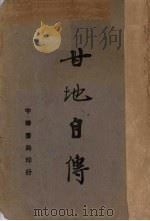 研狗
甘地自傳
中華書局印行